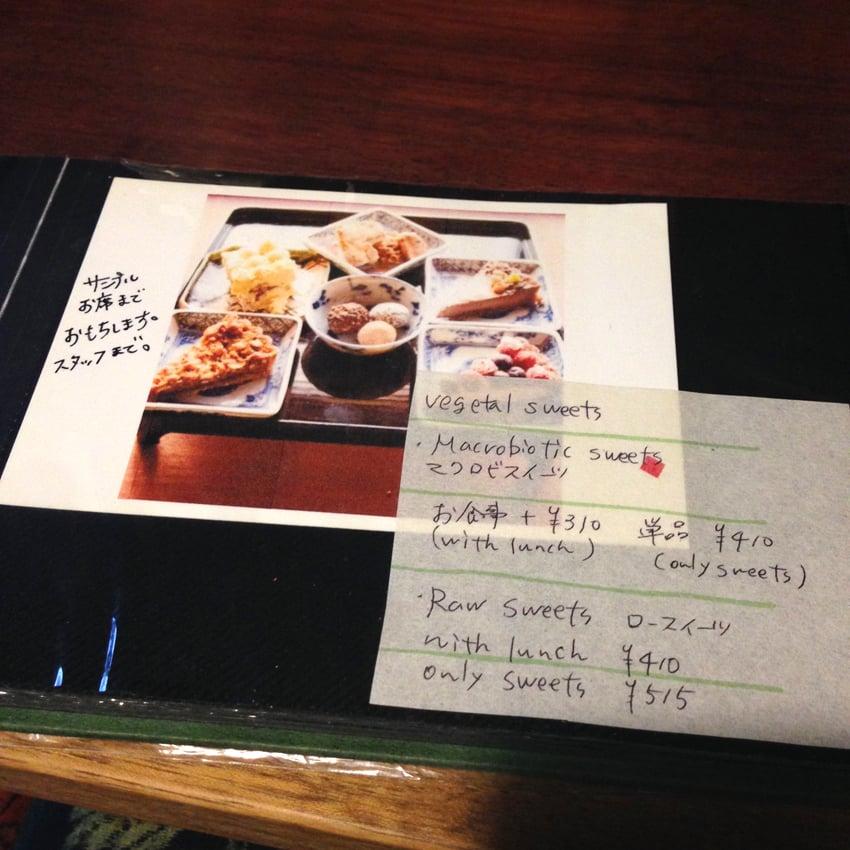 サンプル
お席まで
おもちします。
スタッフまで。
vegetal sweets
・Macrobiotic sweets
マクロビスイーツ
お食事 + ¥310 単品 ¥410
(with lunch) (only sweets)
・Raw sweets ロースイーツ
with lunch ¥410
only sweets ¥515